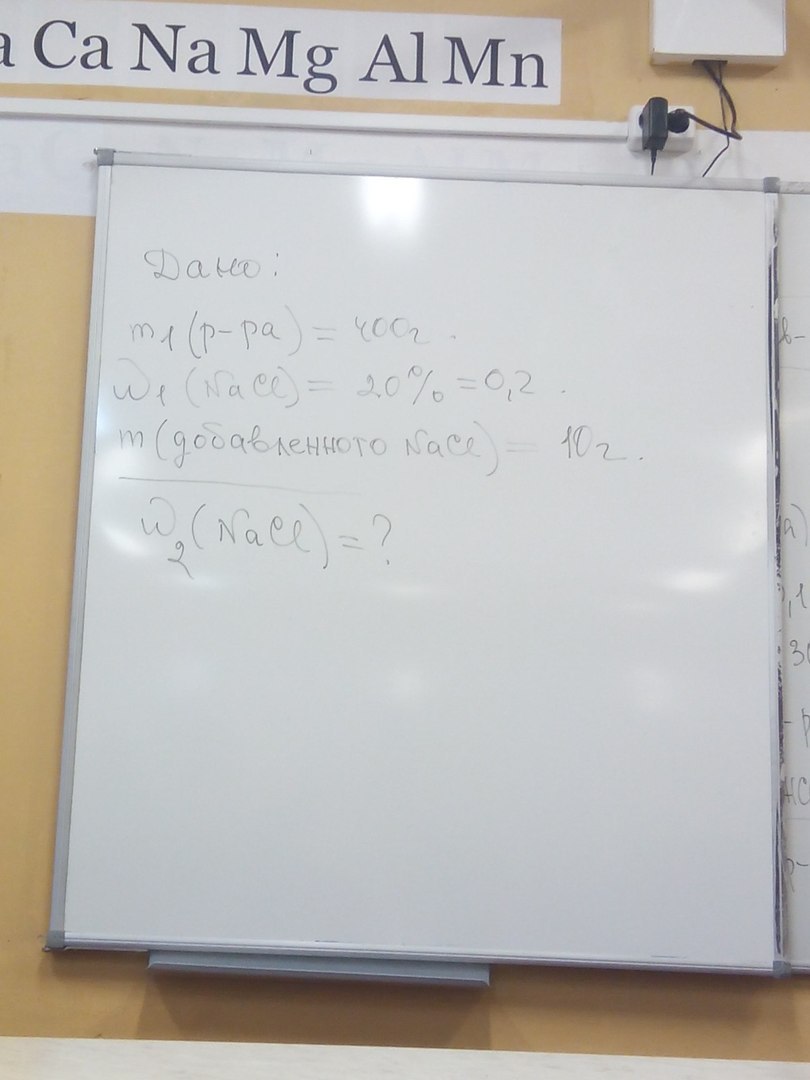 Ca Na Mg Al Mn
Дано:
m₁(р-ра) = 400г.
ω₁(NaCl) = 20% = 0,2.
m(добавленного NaCl) = 10г.
ω₂(NaCl) = ?